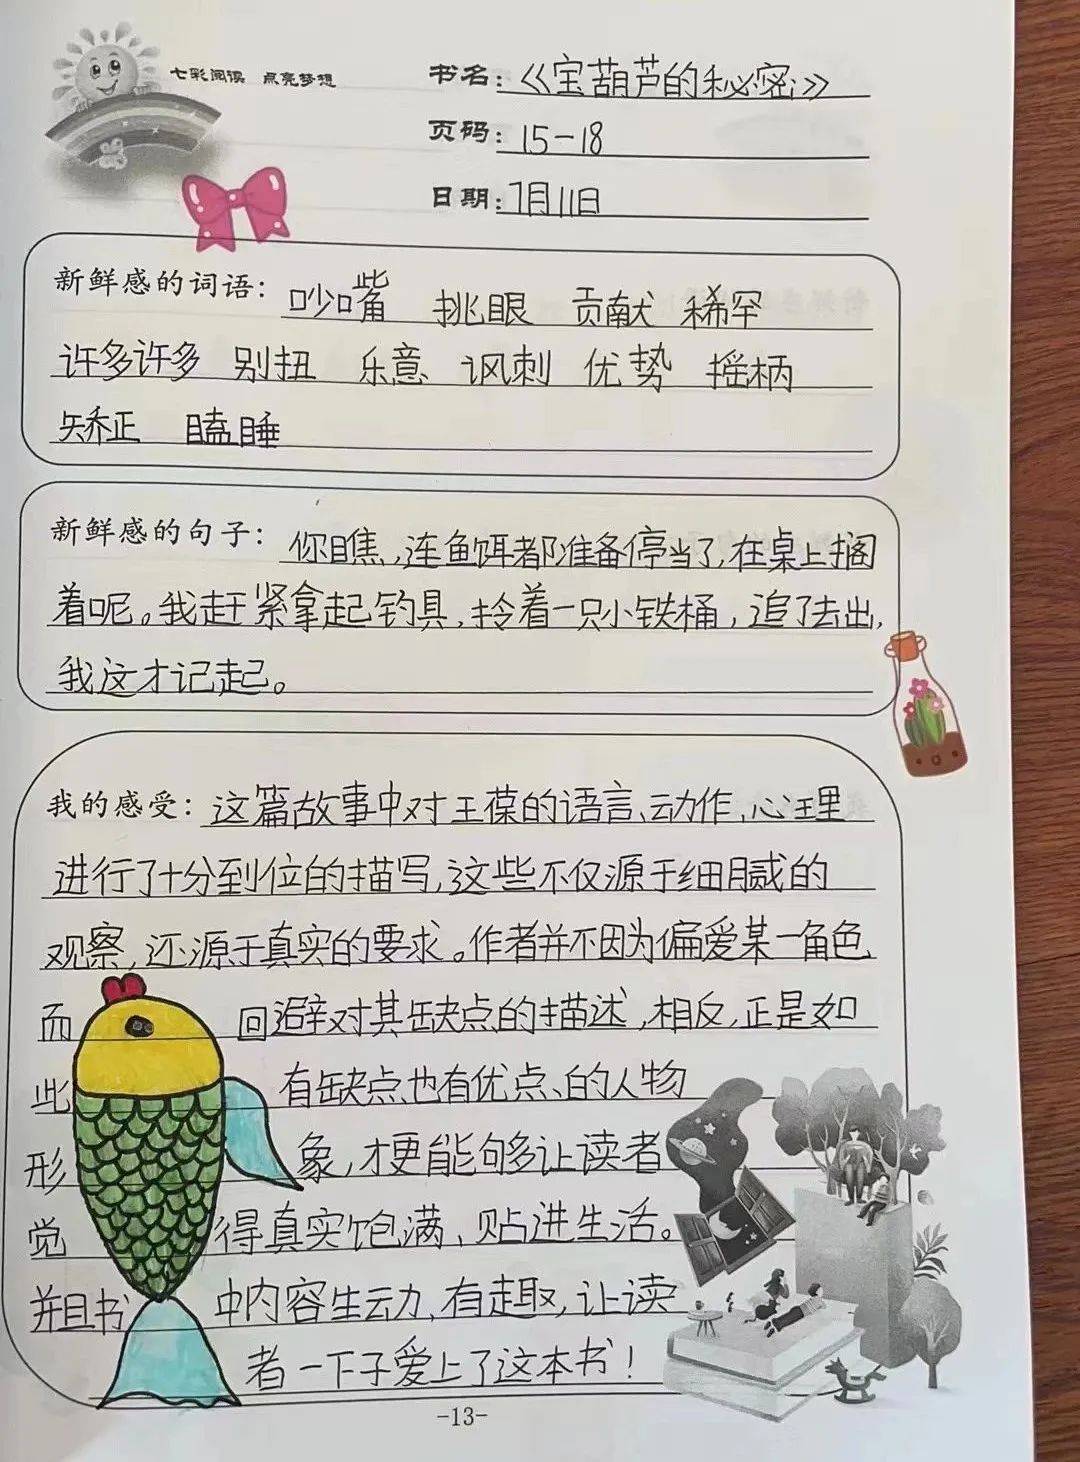 七彩阅读 点亮梦想
书名：《宝葫芦的秘密》
页码：15-18
日期：7月11日
新鲜感的词语：吵嘴 挑眼 贡献 稀罕
许多许多 别扭 乐意 讽刺 优势 摇柄
矫正 瞌睡
新鲜感的句子：你瞧，连鱼饵都准备停当了，在桌上搁
着呢。我赶紧拿起钓具，拎着一只小铁桶，追了去出，
我这才记起。
我的感受：这篇故事中对王葆的语言、动作、心理
进行了十分到位的描写，这些不仅源于细腻的
观察，还源于真实的要求。作者并不因为偏爱某一角色
而回避对其缺点的描述，相反，正是如
些有缺点也有优点、的人物
形象，才更能够让读者
觉得真实饱满、贴进生活。
并且书中内容生动、有趣，让读
者一下子爱上了这本书！
-13-